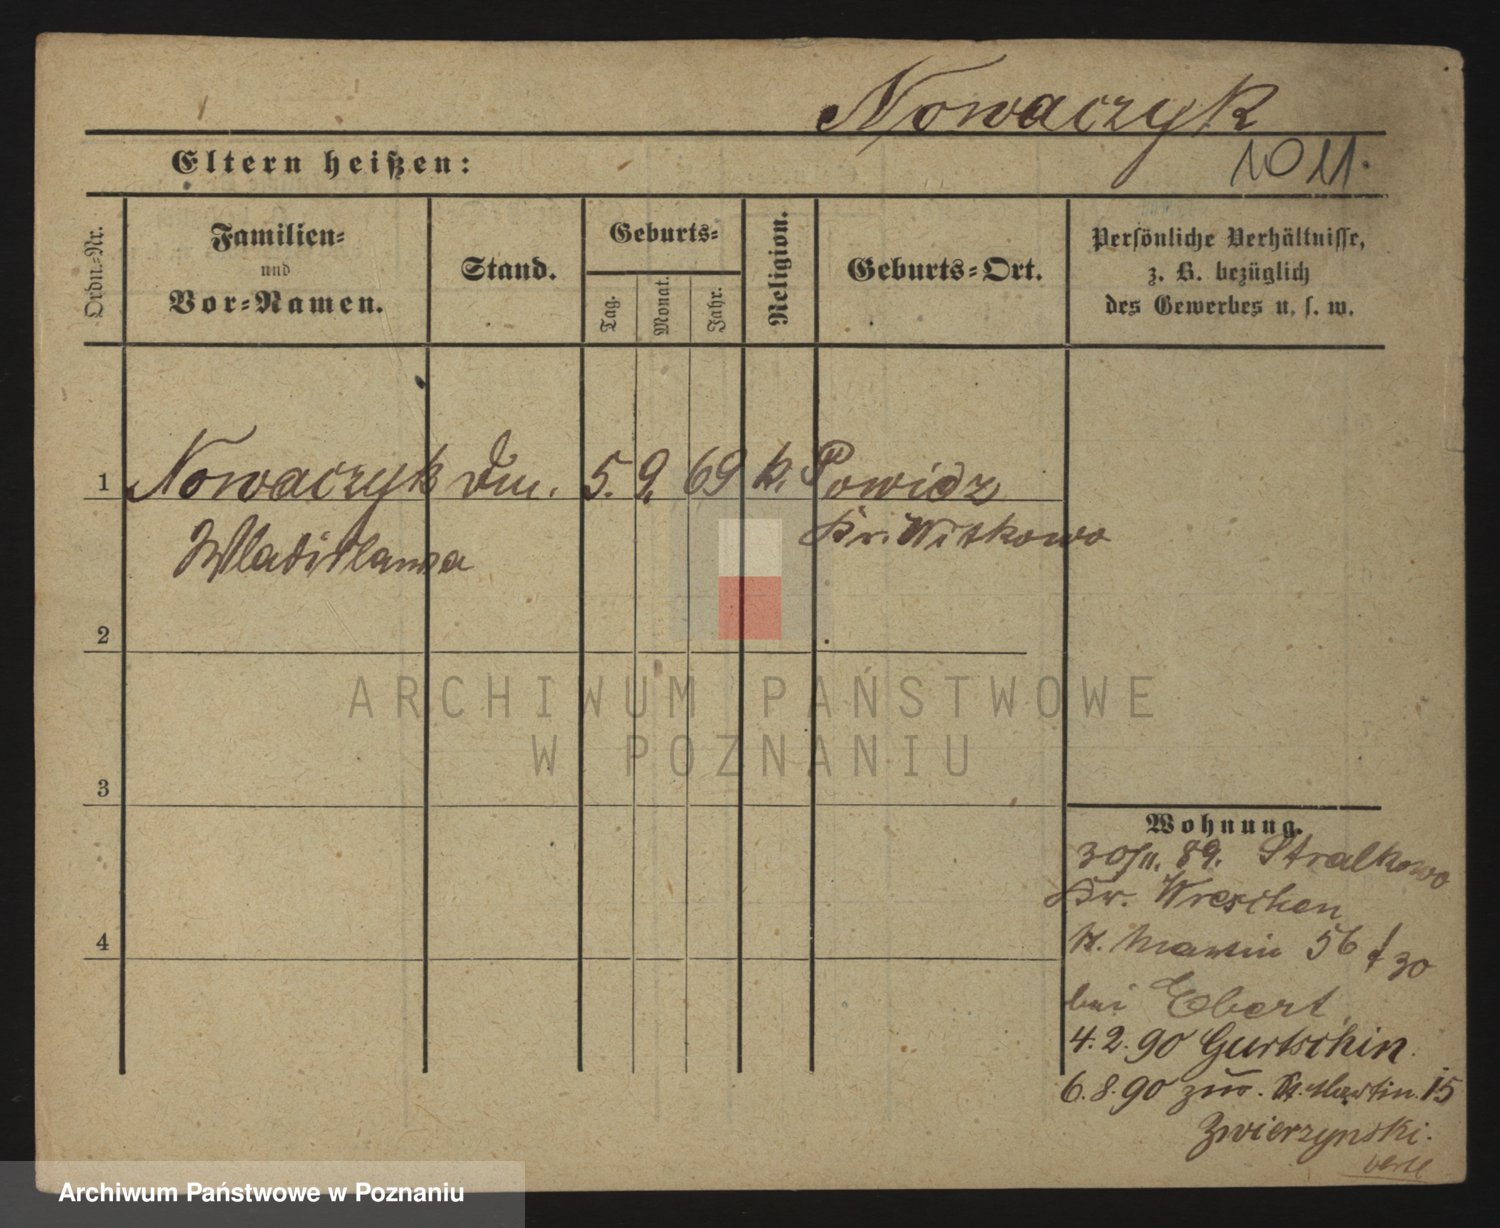 Nowaczyk
1011.
Eltern heißen:
Ordn.-Nr.
Familien-
und
Vor-Namen.
Stand.
Geburts-
Tag.
Monat.
Jahr.
Religion.
Geburts-Ort.
Persönliche Verhältnisse,
z. B. bezüglich
des Gewerbes u. s. w.
1 Nowaczyk 5. 9. 69 k. Powidz
Wladislawa Kr. Witkowo
2
ARCHIWUM PAŃSTWOWE
W POZNANIU
3
Wohnung.
30/11. 89. Stralkowo
Kr. Wreschen
4
St. Martin 56 30
bei Ebert
4. 2. 90 Gurtschin.
6. 8. 90 zur. St. Martin. 15
Zwierzynski.
verte
Archiwum Państwowe w Poznaniu